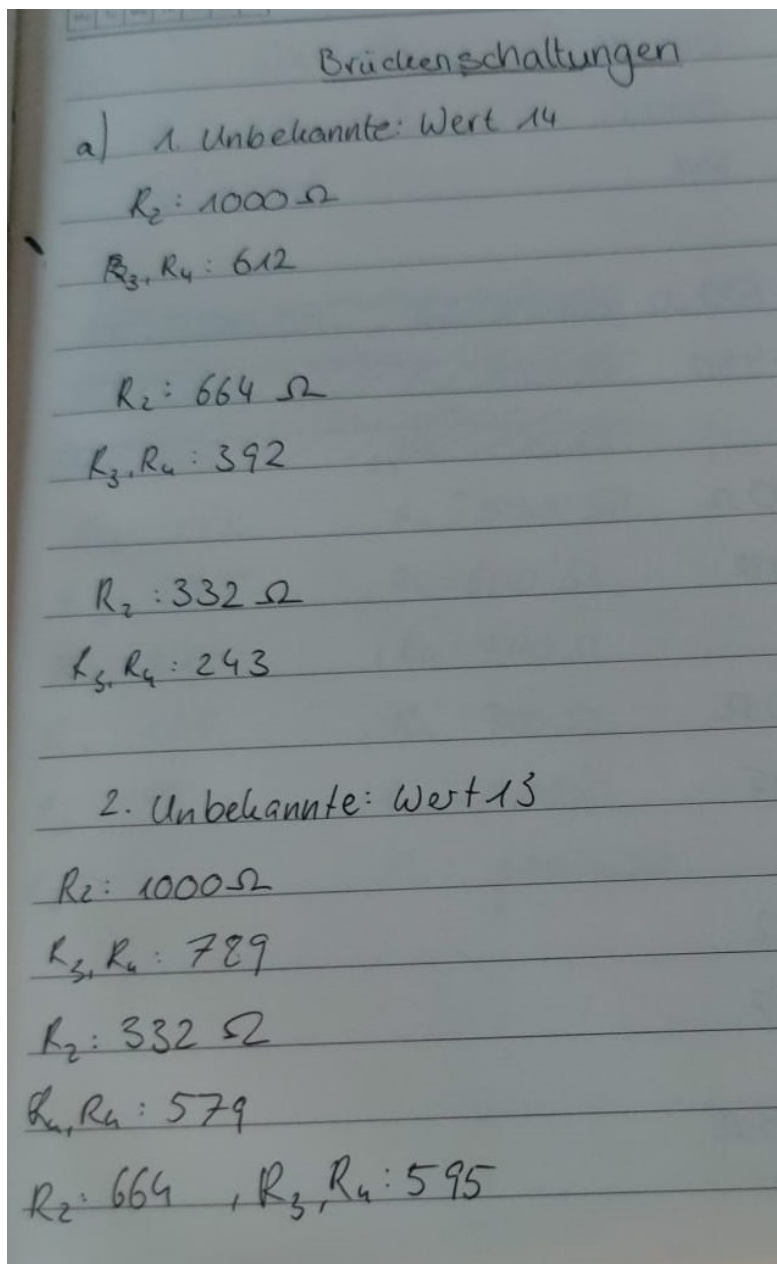 Brückenschaltungen
a) 1. Unbekannte: Wert 14
R₂: 1000 Ω
R₃, R₄: 612
R₂: 664 Ω
R₃, R₄: 392
R₂: 332 Ω
R₃, R₄: 243
2. Unbekannte: Wert 13
R₂: 1000 Ω
R₃, R₄: 789
R₂: 332 Ω
R₄, R₄: 579
R₂: 664, R₃, R₄: 595